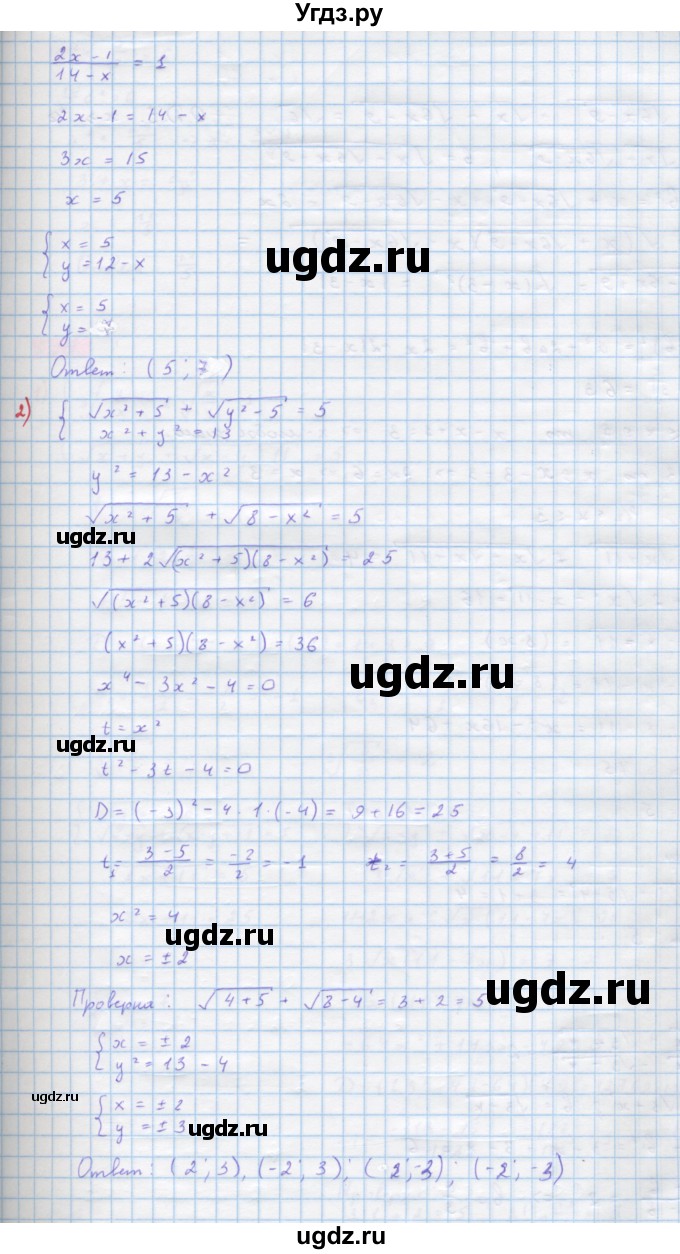 Угдз.ру
(2x - 1)/(14 - x) = 1
2x - 1 = 14 - x
3x = 15
x = 5
{ x = 5
y = 12 - x
ugdz.ru
{ x = 5
y = 7
Ответ: (5; 7)
2) { √(x² + 5) + √(y² - 5) = 5
x² + y² = 13
y² = 13 - x²
√(x² + 5) + √(8 - x²) = 5
ugdz.ru
13 + 2√((x² + 5)(8 - x²)) = 25
√((x² + 5)(8 - x²)) = 6
(x² + 5)(8 - x²) = 36
ugdz.ru
x⁴ - 3x² - 4 = 0
t = x²
ugdz.ru
t² - 3t - 4 = 0
D = (-3)² - 4 · 1 · (-4) = 9 + 16 = 25
t₁ = (3 - 5)/2 = -2/2 = -1 t₂ = (3 + 5)/2 = 8/2 = 4
x² = 4
ugdz.ru
x = ± 2
ugdz.ru
Проверка: √(4 + 5) + √(8 - 4) = 3 + 2 = 5
{ x = ± 2
y² = 13 - 4
ugdz.ru
{ x = ± 2
y = ± 3
ugdz.ru
Ответ: (2; 3), (-2; 3); (2; -3); (-2; -3)
ugdz.ru